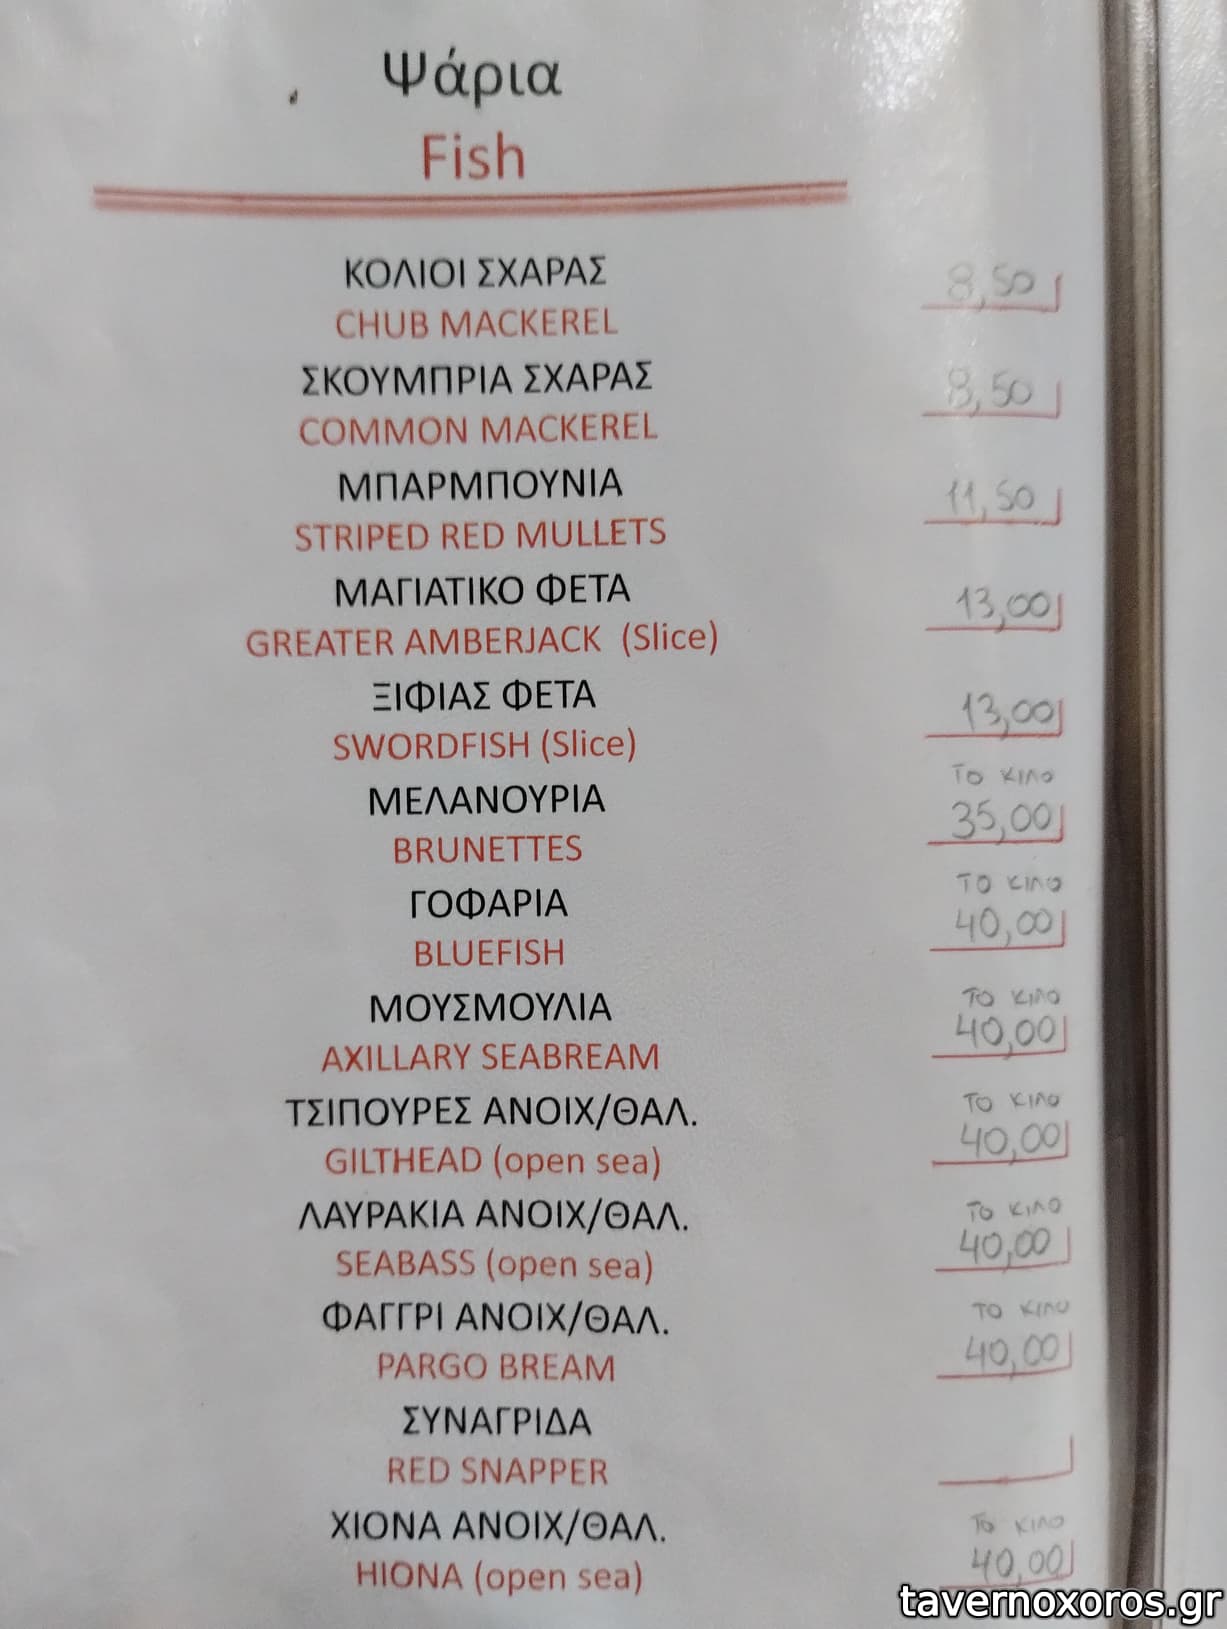 Ψάρια
Fish
ΚΟΛΙΟΙ ΣΧΑΡΑΣ
8,50
CHUB MACKEREL
ΣΚΟΥΜΠΡΙΑ ΣΧΑΡΑΣ
8,50
COMMON MACKEREL
ΜΠΑΡΜΠΟΥΝΙΑ
11,50
STRIPED RED MULLETS
ΜΑΓΙΑΤΙΚΟ ΦΕΤΑ
13,00
GREATER AMBERJACK (Slice)
ΞΙΦΙΑΣ ΦΕΤΑ
13,00
SWORDFISH (Slice)
ΤΟ ΚΙΛΟ
ΜΕΛΑΝΟΥΡΙΑ
35,00
BRUNETTES
ΤΟ ΚΙΛΟ
ΓΟΦΑΡΙΑ
40,00
BLUEFISH
ΤΟ ΚΙΛΟ
ΜΟΥΣΜΟΥΛΙΑ
40,00
AXILLARY SEABREAM
ΤΟ ΚΙΛΟ
ΤΣΙΠΟΥΡΕΣ ΑΝΟΙΧ/ΘΑΛ.
40,00
GILTHEAD (open sea)
ΤΟ ΚΙΛΟ
ΛΑΥΡΑΚΙΑ ΑΝΟΙΧ/ΘΑΛ.
40,00
SEABASS (open sea)
ΤΟ ΚΙΛΟ
ΦΑΓΓΡΙ ΑΝΟΙΧ/ΘΑΛ.
40,00
PARGO BREAM
ΣΥΝΑΓΡΙΔΑ
RED SNAPPER
ΤΟ ΚΙΛΟ
ΧΙΟΝΑ ΑΝΟΙΧ/ΘΑΛ.
40,00
HIONA (open sea)
tavernoxoros.gr